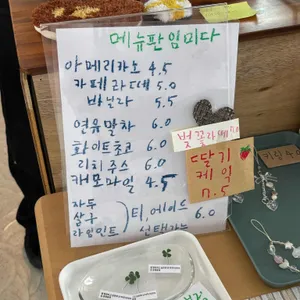 메뉴판 임미다
아메리카노 4.5
카페라떼 5.0
바닐라 5.5
연유말차 6.0
화이트초코 6.0
리치쥬스 6.0
캐모마일 4.5
자두
살구
라임민트
티, 에이드 6.0
선택가능
벚꽃라떼
딸기
케익
7.5